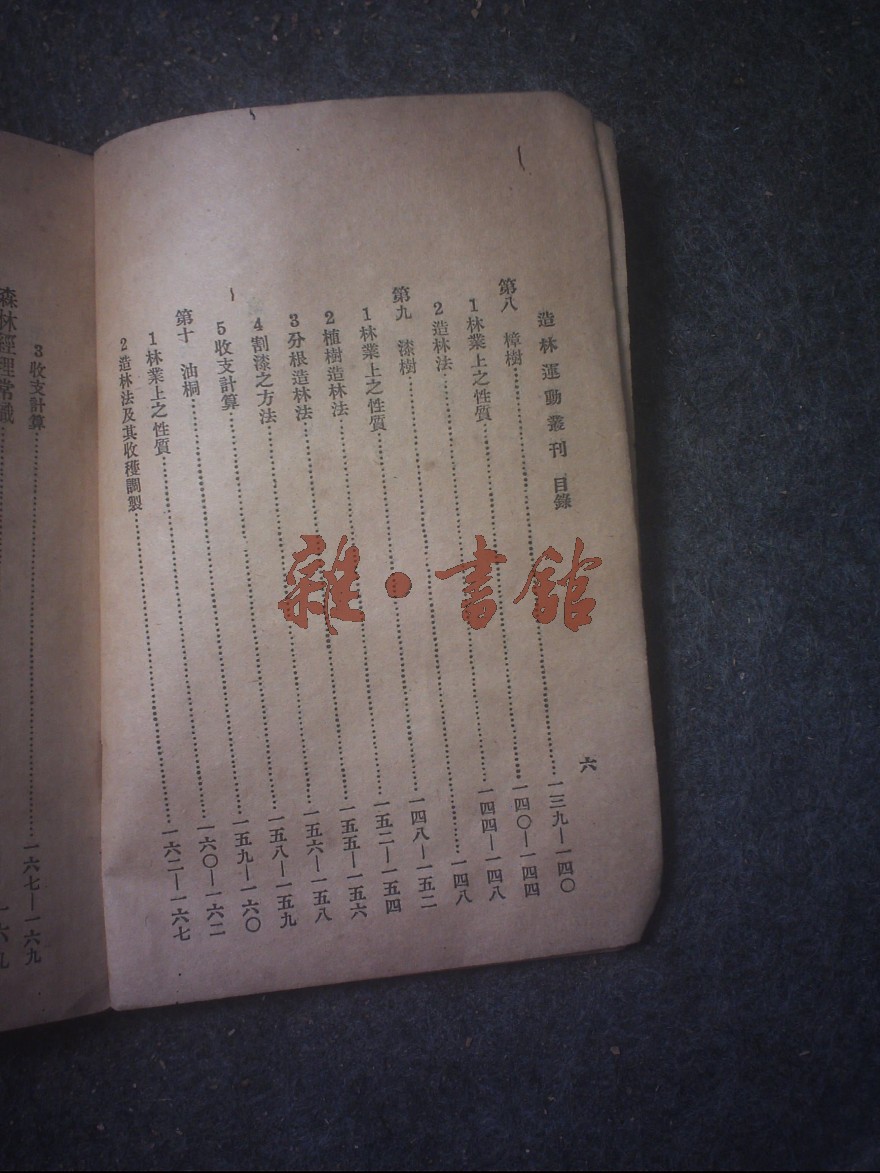 造林運動叢刊 目錄 六
第八 樟樹……一三九—一四〇
1 林業上之性質……一四〇—一四四
2 造林法……一四四—一四八
第九 漆樹……一四八
1 林業上之性質……一四八—一五二
2 植樹造林法……一五二—一五四
3 分根造林法……一五五—一五六
4 割漆之方法……一五六—一五八
5 收支計算……一五八—一五九
第十 油桐……一五九—一六〇
1 林業上之性質……一六〇—一六二
2 造林法及其收穫調製……一六二—一六七
3 收支計算……一六七—一六九
森林經理常識……一六九
雜·書館